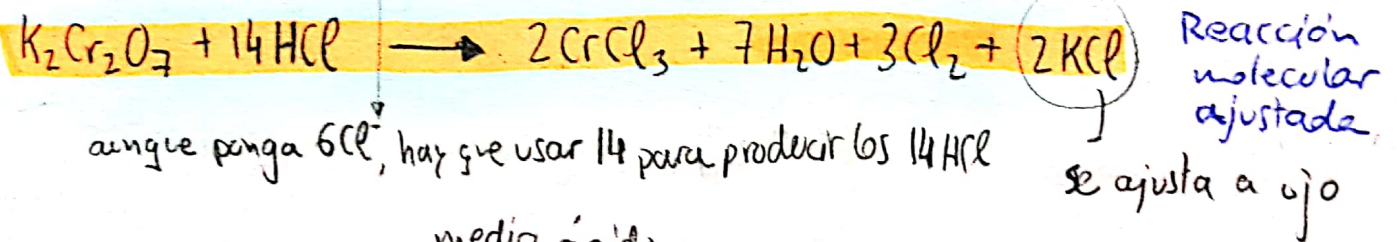 K₂Cr₂O₇ + 14HCl → 2CrCl₃ + 7H₂O + 3Cl₂ + 2KCl
Reacción
molecular
ajustada
aunque ponga 6Cl⁻, hay que usar 14 para producir los 14 HCl
se ajusta a ojo
medio ácido